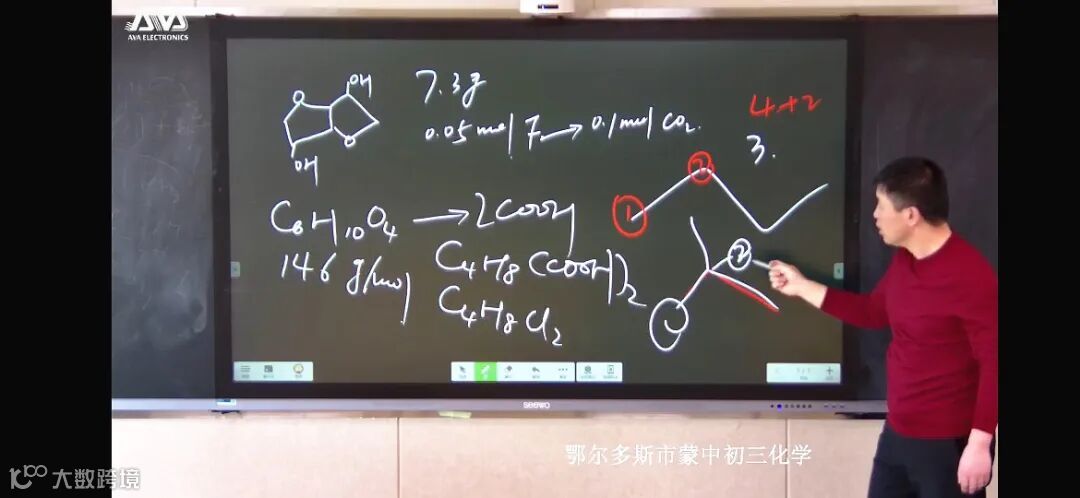 AVA
AVA ELECTRONICS
OH
O
O
OH
7.3g
0.05mol F → 0.1mol CO₂.
4+2
3.
C₆H₁₀O₄ → 2COOH
146 g/mol
C₄H₈(COOH)₂
C₄H₈Cl₂
①
②
②
seewo
鄂尔多斯市蒙中初三化学
大数跨境